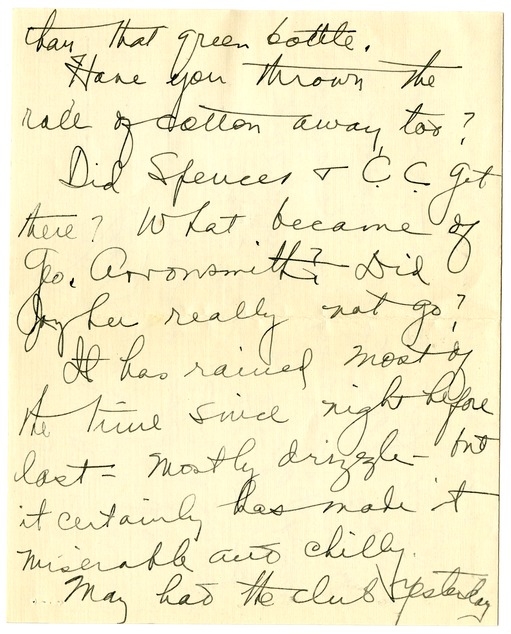 than that green bottle.
Have you thrown the
role of cotton away, too?
Did Spencer + C. C. get
there? What became of
Geo. Arronsmith? Did
really not go?
It has rained most of
the time since night before
last - mostly drizzle - but
it certainly has made it
miserable and chilly.
May had the club yesterday